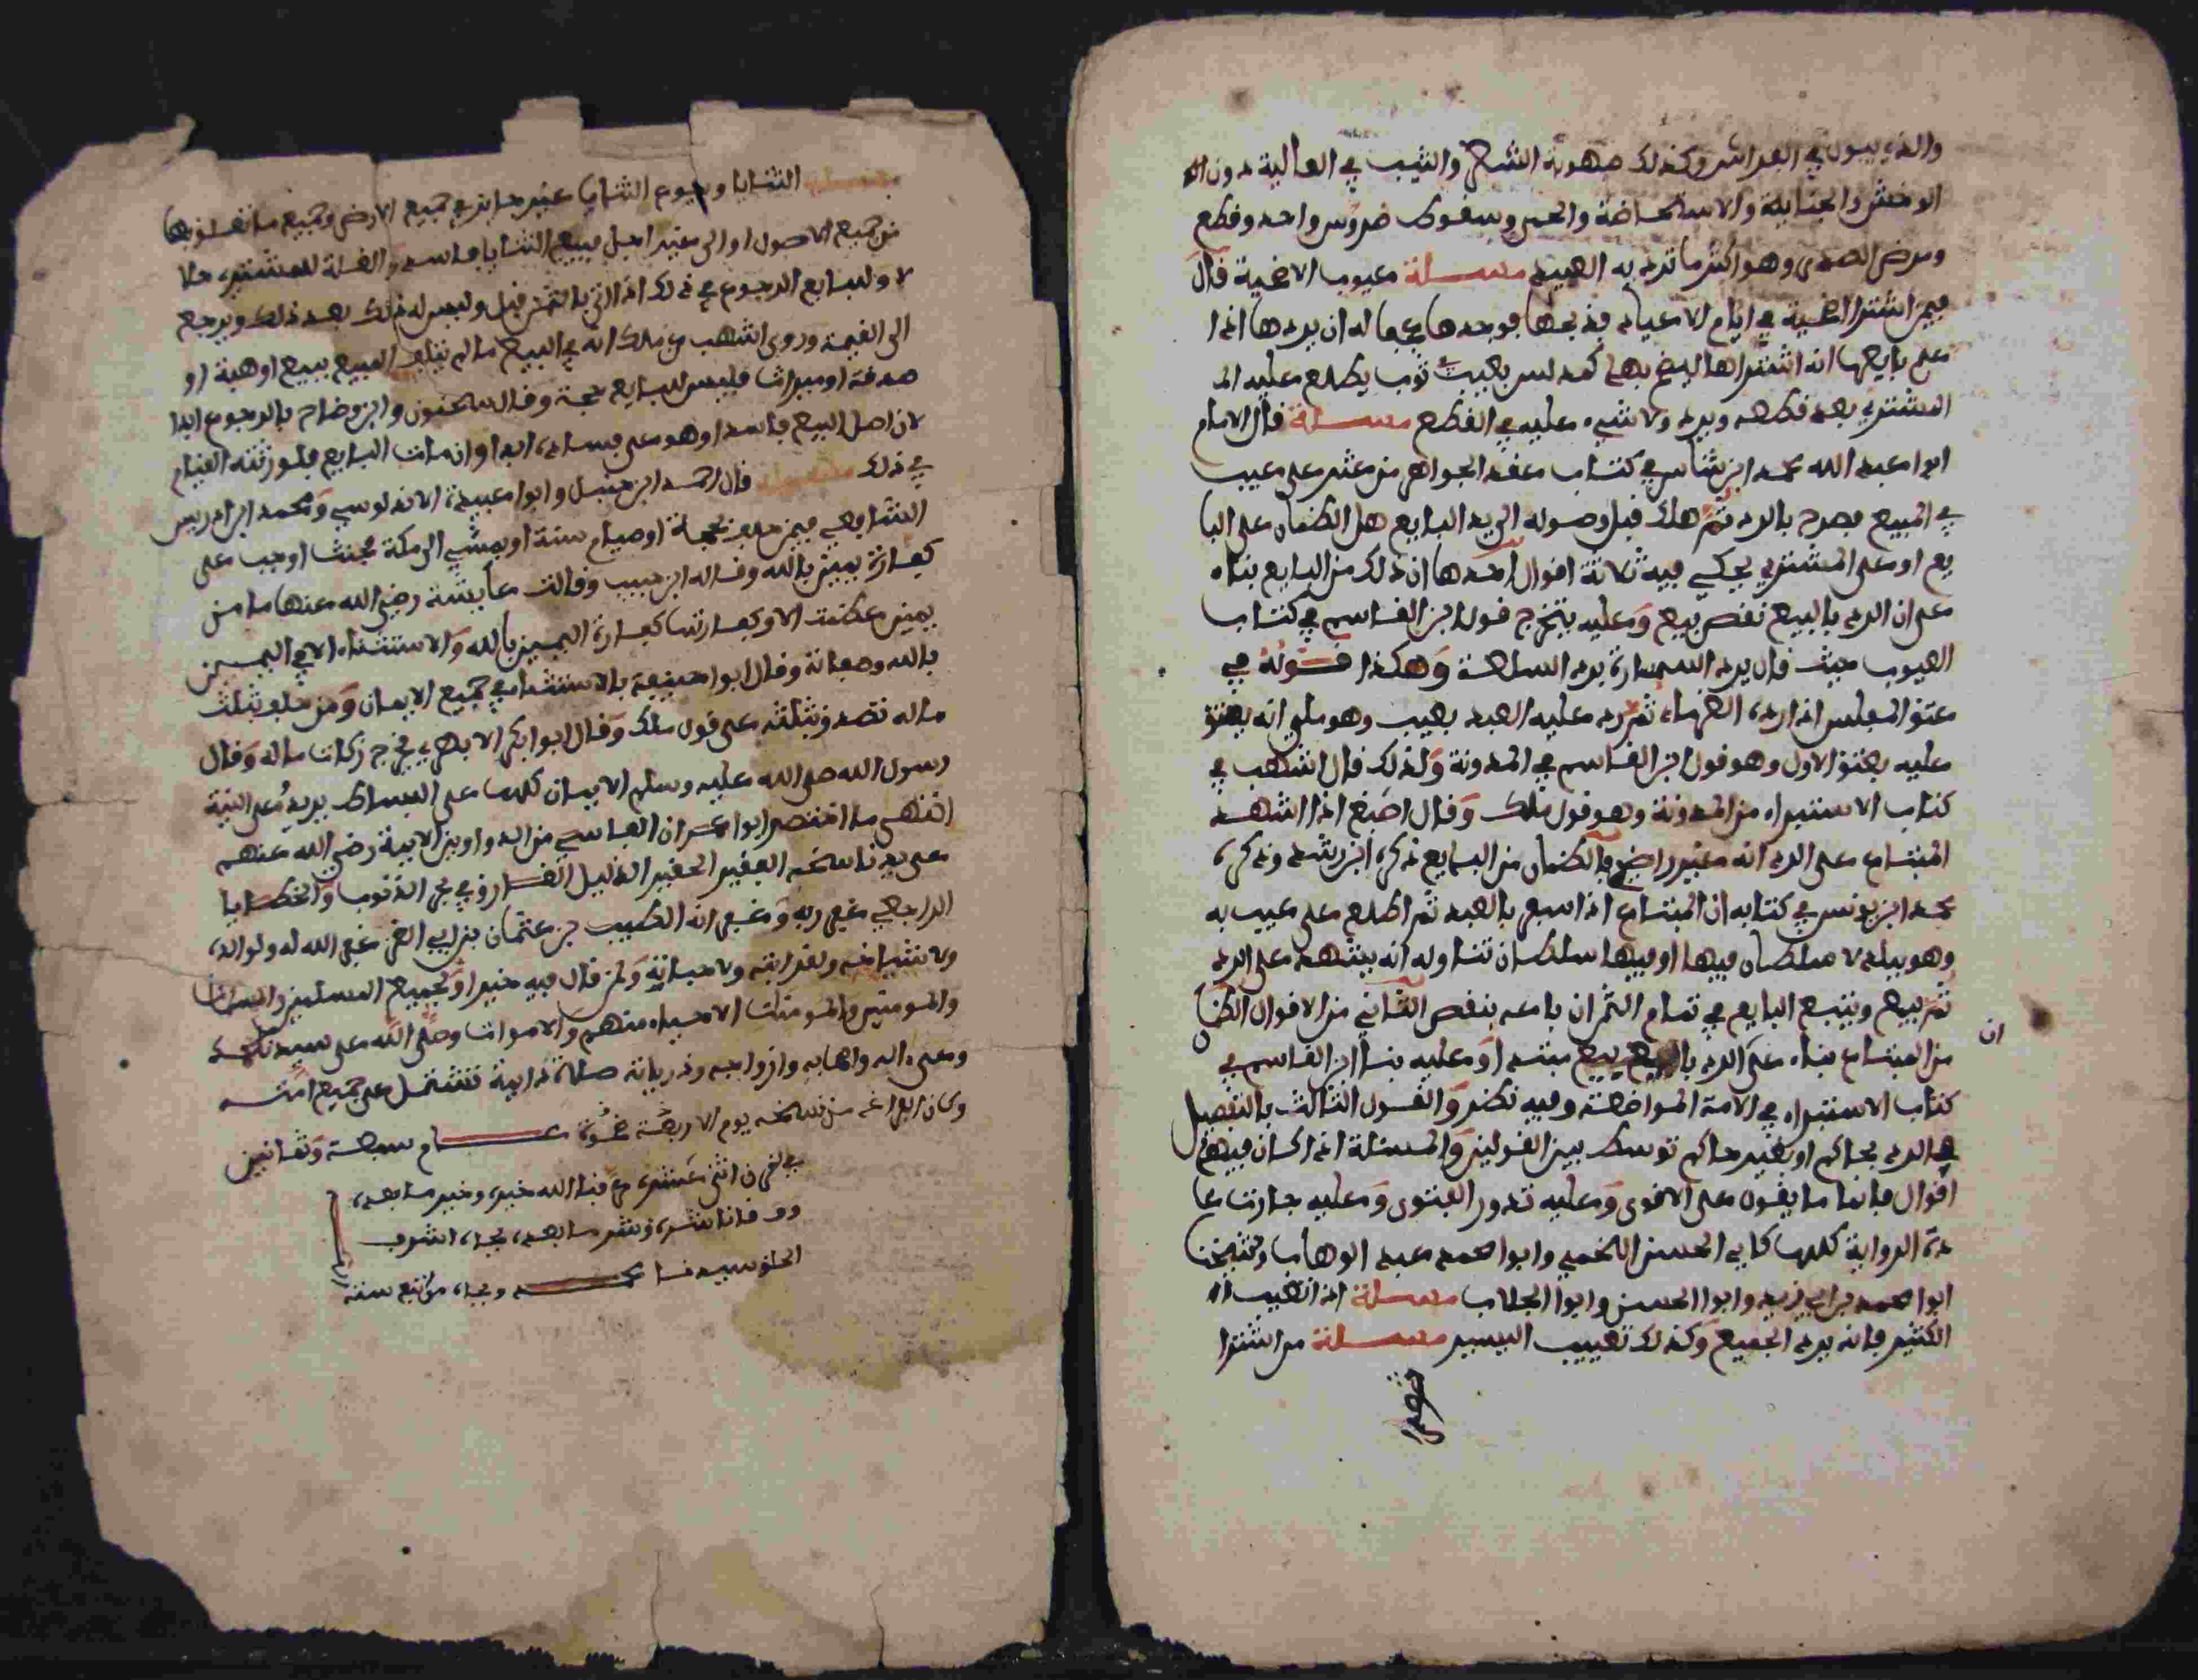 والذي يبول في الفراش وكذلك صهوبة الشعر والشيب في العالية دون
الوخش والجنابة والاستحاضة والحمل وسقوط ضروس واحد وقطع
ومرض الصدر وهو اكثر ما ترد به العبيد مسئلة عيوب الاضحية قال
فيمن اشترا اضحية في ايام الاعياد فذبحها فوجدها عجفا له ان يردها اذا
علم بايعها انه اشتراها ليضح بها كمدلس بعيب ثوب يطلع عليه الـ
المشتري بعد قطعه ويرد ولا شيء عليه في القطع مسئلة قال الامام
ابوا عبد الله محمد ابن شاس في كتاب عقد الجواهر من عثر على عيب
في المبيع فصرح بالرد ثم هلك قبل وصوله الى يد البايع هل الضمان على البا
يع او على المشتري يحكى فيه ثلاثة اقوال احدها ان ذلك من البايع بناء
على ان الرد بالبيع نقض بيع وعليه يتخرج قول ابن القاسم في كتاب
العيوب حيث قال يرد السمسارة برد السلعة وهكذا قوله في
عتق المفلس اذا رده الغرماء ثم رد عليه العبد بعيب وهو ملي انه يعتق
عليه بعتق الاول وهو قول ابن القاسم في المدونة ولذلك قال اشهب في
كتاب الاستبراء من المدونة وهو قول ملك وقال اصبغ اذا اشهد
المبتاع على الرد انه غير راض فالضمان من البايع ذكره ابن رشد وذكره
محمد ابن يونس في كتابه ان المبتاع اذا سعى بالعبد ثم اطلع على عيب به
وهو ببلد لا سلطان فيها او فيها سلطان تناوله انه يشهد على الرد
ثم يبيع ويتبع البايع في تمام الثمن ان باعه بنقص الثاني من الاقوال الضما
ان
من المبتاع بناء على الرد بالبيع بيع مبتدا وعليه بنا ابن القاسم في
كتاب الاستبراء في الامة المواضعة وفيه نظر والقول الثالث بالتفصيل
هل الرد بحاكم او بغير حاكم توسط بين القولين والمسئلة اذا كان فيها
اقوال فانما ما يقون على الاقوى وعليه تدور الفتوى وعليه جازت عا
دة الرواية كلها كابي الحسن اللخمي وابوا محمد عبد الوهاب وشيخنا
ابوا محمد بن ابي زيد وابوا الحسن وابوا الجلاب مسئلة اذا تعيب
الكثير فانه يرد الجميع وكذلك تعييب اليسير مسئلة من اشترا
ثوبا
مسئلة الثنايا وبيوع الثنايا غير جايز في جميع الارض وجميع ما تعلق بها
من جميع الاصول او الى غير اجل فبيع الثنايا فاسد والغلة للمشتري حلا
لا وللبايع الرجوع في ذلك اذا اتى بالثمن قبل وليس له ذلك بعد ذلك ويرجع
الى القيمة وروى اشهب عن ملك انه في البيع ما لم يفت المبيع ببيع او هبة او
صدقة او ميراث فليس للبايع حجة وقال سحنون وابن وضاح بالرجوع ابدا
لان اصل البيع فاسدا وهو على فساده ابدا وان مات البايع فلورثته القيام
في ذلك مسئلة قال احمد ابن حنبل وابوا عبيدة الاندلوسي ومحمد ابن ادريس
الشافعي فيمن حلف بحجة او صيام سنة او يمشي الى مكة فحنث اوجب على
كفارة يمين بالله وقاله ابن حبيب وقالت عايشة رضي الله عنها ما من
يمين عظمت الا وكفارتها كفارة اليمين بالله والاستثناء الا في اليمين
بالله وصفاته وقال ابوا حنيفة بالاستثناء في جميع الايمان ومن حلف بثلث
ماله تصدق بثلثه على قول ملك وقال ابوا بكر الابهري يخرج زكات ماله وقال
رسول الله صلى الله عليه وسلم الايمان كلها على البساط يريد على النية
انتهى ما اختصر ابوا عمران الفاسي من الدواوين الابية رضي الله عنهم
على يد ناسخه الفقير الحقير الذليل الغارق في بحر الذنوب والخطايا
الراجي عفو ربه وعفي انه الطيب بن عثمان بن ابي الغر غفر الله له ولوالده
ولاشياخه ولقرابته ولاحبابه ولمن قال فيه خيرا ولجميع المسلمين والمسلمات
والمومنين والمومنات الاحياء منهم والاموات وصلى الله على سيدنا محمد
وعلى ءاله واصحابه وازواجه وذرياته صلاة دايمة تشتمل على جميع امته
وكان الفراغ من نسخه يوم الاربعة غدوة عام سبعة وثمانين
في قرن اثني عشرة عرفنا الله خيره وخير ما بعده
ووقانا شره وشر ما بعده بجاه اشرف
الخلق سيدنا محمد وبجاه من تبع سنته